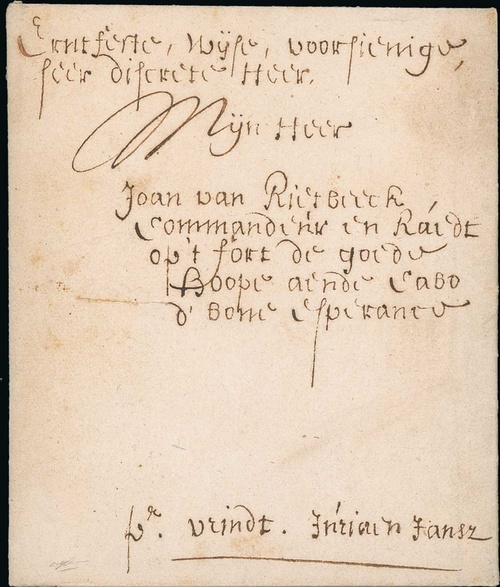 Erntfeste, Wijse, voorsienige,
seer discrete Heer,
Mijn Heer
Joan van Rietbeeck,
Commandeúr en Ráedt
op't fort de goede
Hoope aende Cabo
d' bone Esperance
pr. vrindt. Júriaen Jansz